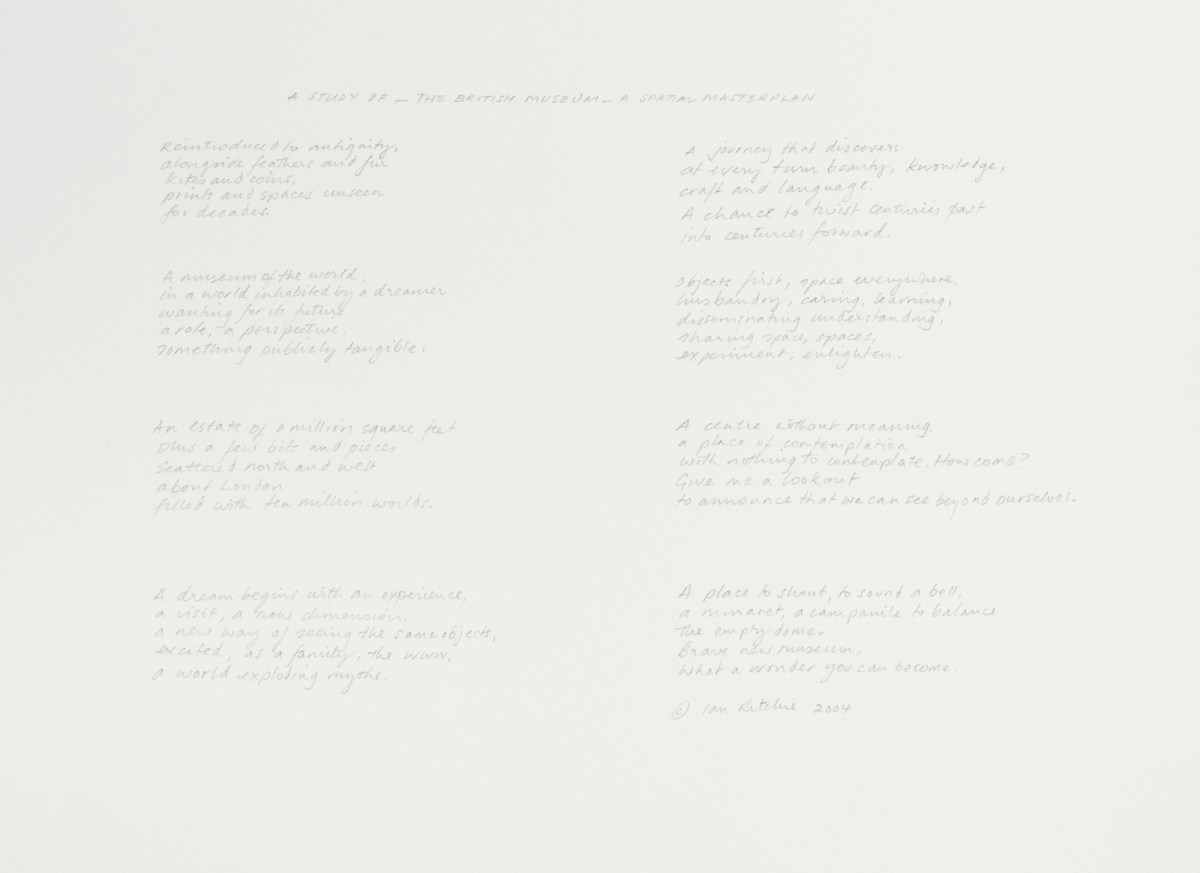 A STUDY OF – THE BRITISH MUSEUM – A SPATIAL MASTERPLAN
Reintroduced to antiquity,
alongside feathers and fur
kites and coins,
prints and spaces unseen
for decades.
A museum of the world,
in a world inhabited by a dreamer
wanting for its future
a role, a perspective,
something publicly tangible.
An estate of a million square feet
plus a few bits and pieces
scattered north and west
about London
filled with ten million worlds.
A dream begins with an experience,
a visit, a new dimension,
a new way of seeing the same objects,
excited, as a family, the www,
a world exploding myths.
A journey that discovers
at every turn beauty, knowledge,
craft and language.
A chance to twist centuries past
into centuries forward.
Objects first, space everywhere,
husbandry, caring, learning,
disseminating understanding,
sharing space, spaces,
experiment, enlighten.
A centre without meaning
a place of contemplation
with nothing to contemplate. How come?
Give me a lookout
to announce that we can see beyond ourselves.
A place to shout, to sound a bell,
a minaret, a campanile to balance
the empty dome.
Brave new museum,
what a wonder you can become.
© Ian Ritchie 2004